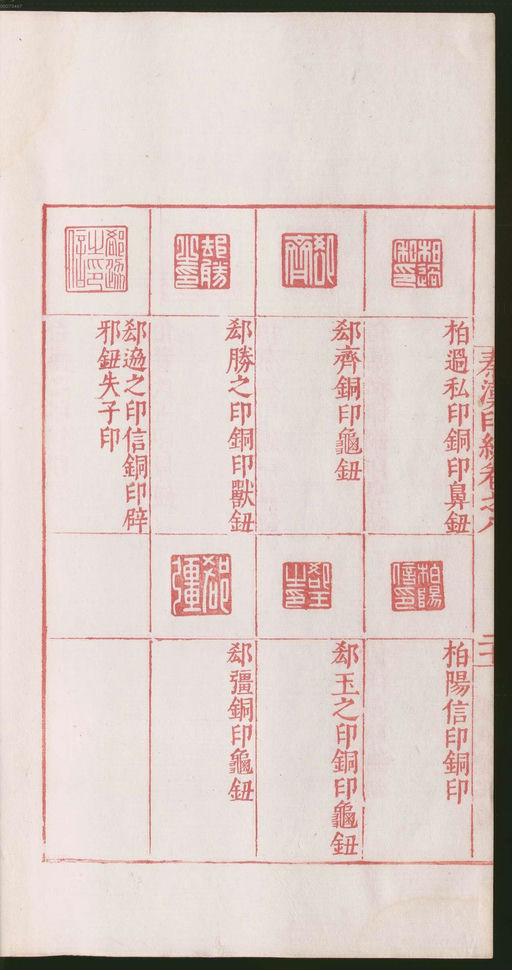 秦漢印統卷之八
二十
柏過私印銅印鼻鈕
郄齊銅印龜鈕
郄勝之印銅印獸鈕
郄過之印信銅印辟
邪鈕失子印
柏陽信印銅印
郄玉之印銅印龜鈕
郄彊銅印龜鈕